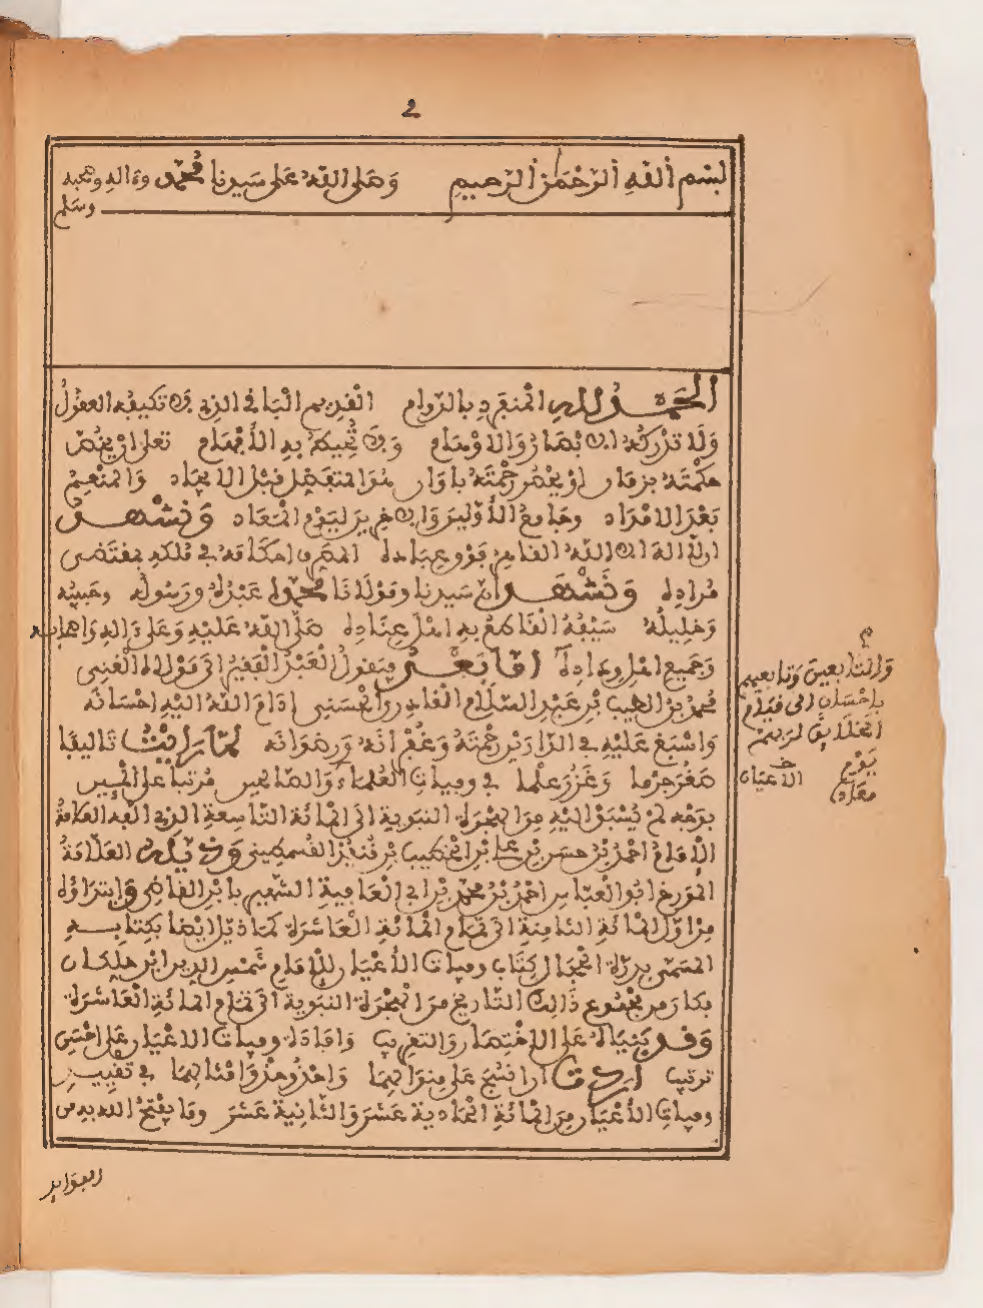 2
بسم الله الرحمن الرحيم وصلى الله على سيدنا محمد وءاله وصحبه
وسلم
الحمد لله المنفرد بالدوام القديم الباقي الذي لا تكيفه العقول
ولا تدركه الابصار والاوهام ولا تحيط به الأفهام تعلى ان يخص
حكمته بزمان او يعمر رحمته باوان هو المتفضل قبل الايجاد والمنعم
بعد الامداد وجامع الأولين والاخرين ليوم المعاد ونشهد
ان لا اله الا الله القاهر فوق عباده المجري احكامه في ملكه بمقتضى
مراده ونشهد ان سيدنا ومولانا محمدا عبده ورسوله وحبيبه
وخليله سيفه القاطع به اهل عناده صلى الله عليه وعلى ءاله واصحابه
وجميع اهل وداده اما بعد فيقول العبد الفقير الى مولاه الغني
محمد بن الطيب بن عبد السلام القادري الحسني ادام الله اليه احسانه
واسبغ عليه في الدارين رحمته وغفرانه ورضوانه لما رايت تاليفا
صغر جرما وغزر علما في وفيات العلماء والصالحين مرتبا على السنين
بوجه لم يسبق اليه من الهجرة النبوية الى المائة التاسعة الذي الفه العلامة
الإمام احمد بن حسن بن علي بن الخطيب بن قنفذ القسمطيني وذيله العلامة
المورخ ابو العباس احمد بن محمد بن ابي العافية الشهير بابن القاضي وابتداؤه
من اول المائة الثامنة الى تمام المائة العاشرة كما ذيل ايضا بكتابه
المسمى بدرة الحجال كتاب وفيات الأعيان للإمام شمس الدين ابن خلكان
فكان من مجموع ذالك التاريخ من الهجرة النبوية الى تمام المائة العاشرة
وقد بنياه على الاختصار والتقريب وافادة وفيات الاعيان على احسن
ترتيب اردت ان انسج على منوالهما واحذو حذو امثالهما في تقييد
وفيات الأعيان من المائة الحادية عشر والثانية عشر وما يفتح الله به من
والتابعين وتابعيهم
باحسان الى قيام
الخلايق لربهم
يوم
معاده
الأعيان
الفوايد